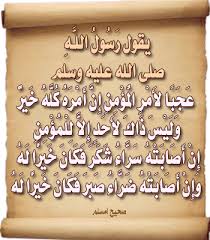 يقول رَسُولُ اللَّهِ
صلى الله عليه وسلم
عَجَبًا لأَمْرِ الْمُؤْمِنِ إِنَّ أَمْرَهُ كُلَّهُ خَيْرٌ
وَلَيْسَ ذَاكَ لأَحَدٍ إِلاَّ لِلْمُؤْمِنِ
إِنْ أَصَابَتْهُ سَرَّاءُ شَكَرَ فَكَانَ خَيْرًا لَهُ
وَإِنْ أَصَابَتْهُ ضَرَّاءُ صَبَرَ فَكَانَ خَيْرًا لَهُ
صحيح مسلم